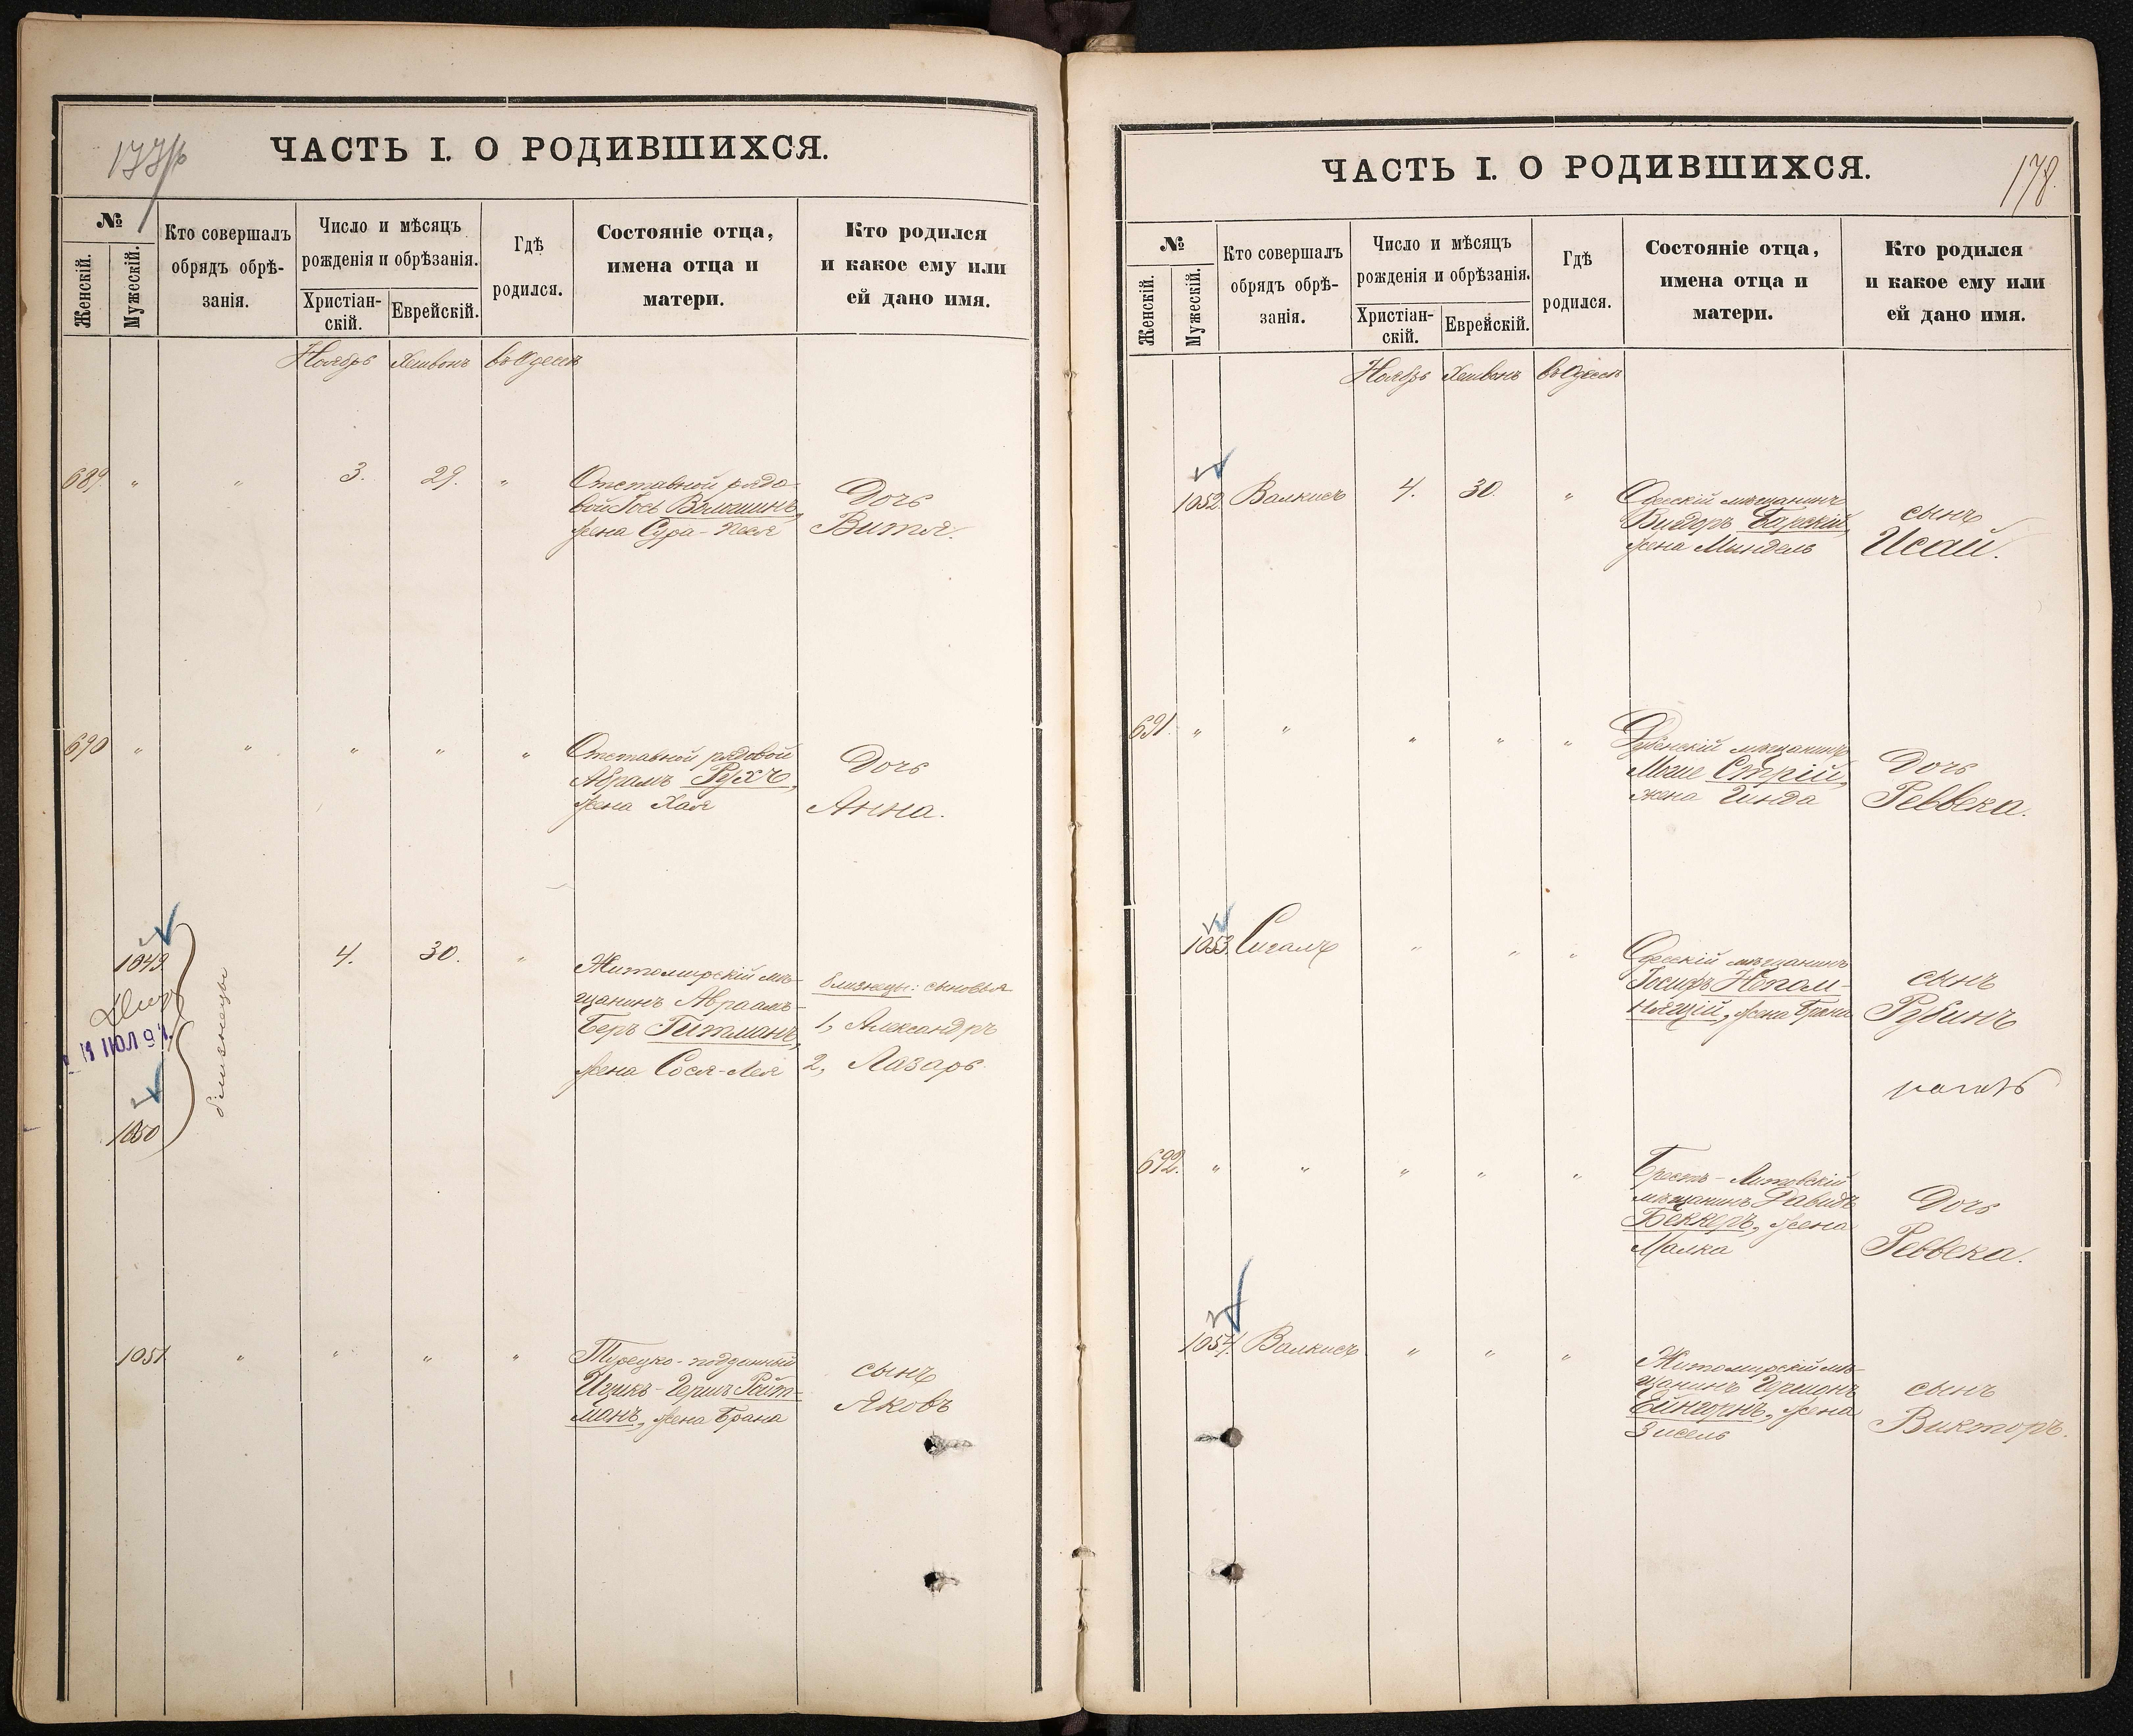 ЧАСТЬ I. О РОДИВШИХСЯ.
№
Женскій.
Мужескій.
Кто совершалъ
обрядъ обрѣ-
занія.
Число и мѣсяцъ
рожденія и обрѣзанія.
Христіан-
скій.
Еврейскій.
Гдѣ
родился.
Состояніе отца,
имена отца и
матери.
Кто родился
и какое ему или
ей дано имя.
Ноябрь Хешвонъ въ Одессѣ
689. " " 3. 29. "
Отставной рядо-
вой Іось Волошинъ,
жена Сура-Песя
Дочь
Витя.
690 " " " " "
Отставной рядовой
Абрамъ Рухъ,
жена Хая
Дочь
Анна.
1049
11 ІЮЛ 91
1050
близнецы
4. 30. "
Житомирскій мѣ-
щанинъ Авраамъ-
Беръ Гитманъ,
жена Сося-Лея
близнецы: сыновья
1, Александръ
2, Лазарь.
1051 " " " "
Турецко-подданный
Ицикъ-Гершъ Ройт-
манъ, жена Брана
сынъ
Яковъ
ЧАСТЬ I. О РОДИВШИХСЯ.
178.
№
Женскій.
Мужескій.
Кто совершалъ
обрядъ обрѣ-
занія.
Число и мѣсяцъ
рожденія и обрѣзанія.
Христіан-
скій.
Еврейскій.
Гдѣ
родился.
Состояніе отца,
имена отца и
матери.
Кто родился
и какое ему или
ей дано имя.
Ноябрь Хешвонъ въ Одессѣ
1052 Валкисъ 4. 30. "
Одесскій мѣщанинъ
Барскій,
жена Миндель
сынъ
Исай.
691. " " " " "
мѣщанинъ
Моше Стрій,
жена Гинда
Дочь
Реввека.
1053. Сигалъ " " "
Одесскій мѣщанинъ
Іосифъ Непом-
нящій, жена Бреша
сынъ
Рубинъ
692. " " " " "
Брестъ-Литовскій
мѣщанинъ Давидъ
Беккеръ, жена
Малка
Дочь
Реввека.
1054. Валкисъ " " "
Житомирскій мѣ-
щанинъ Гершонъ
Ейнгорнъ, жена
Зисель
сынъ
Викторъ.